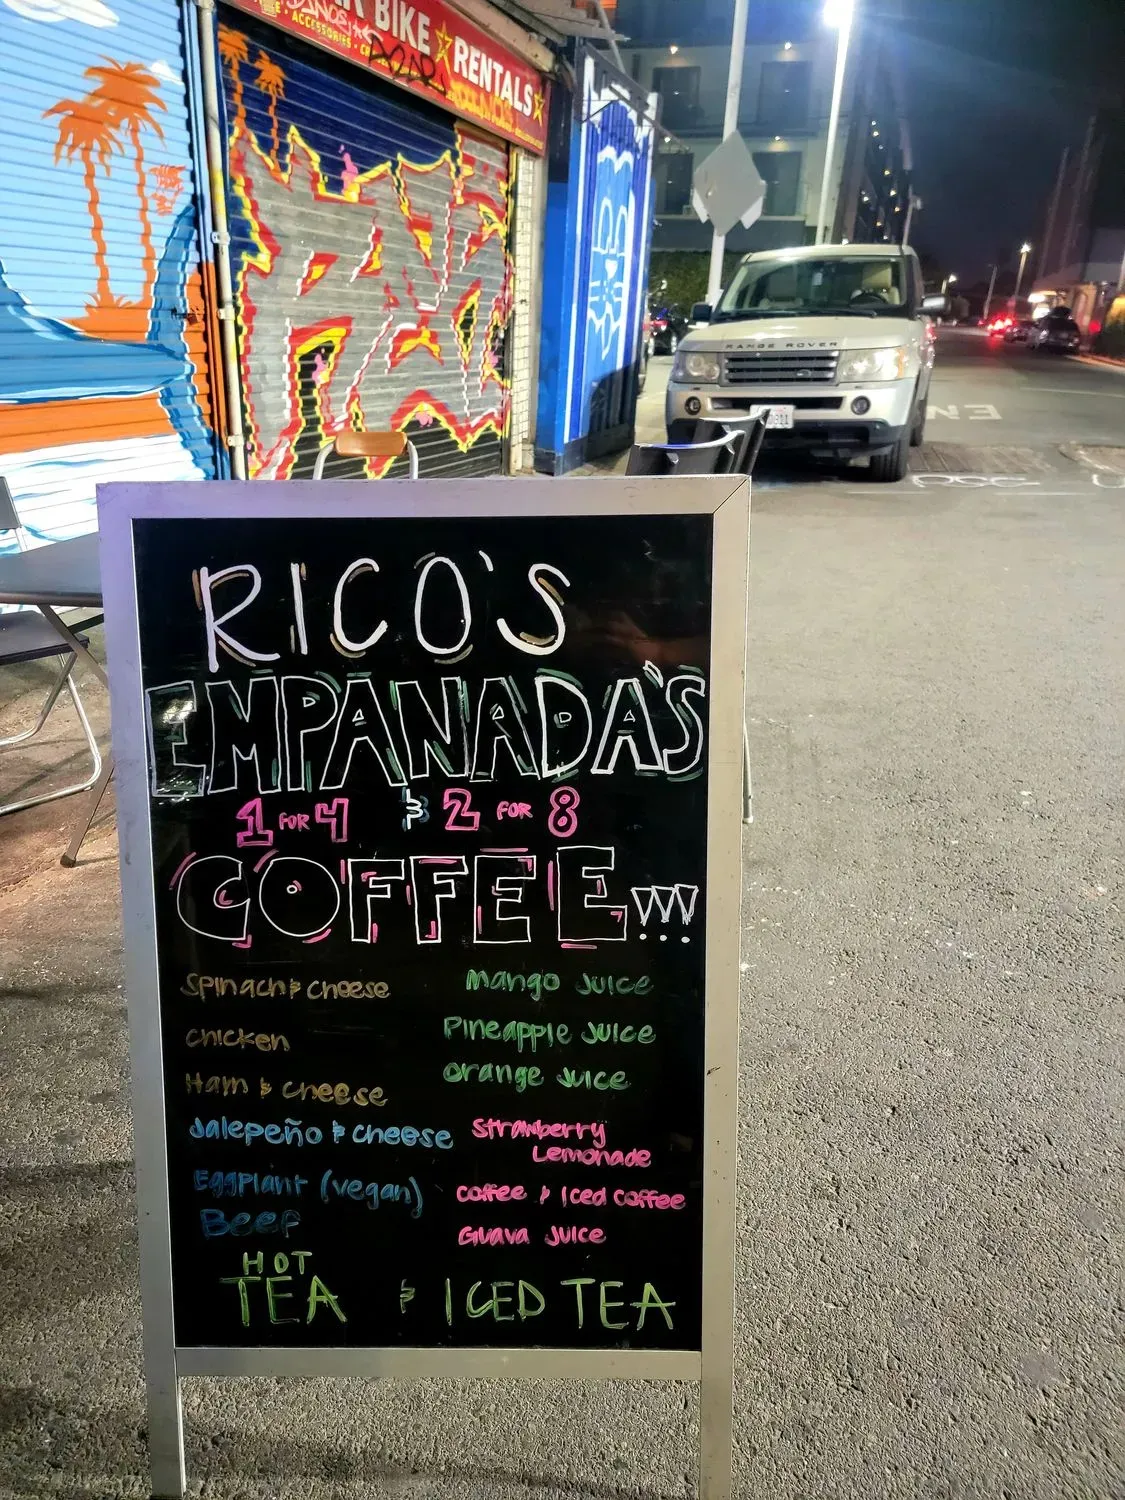 BIKE RENTALS
ACCESSORIES
RANGE ROVER
RICO'S
EMPANADA'S
1 FOR 4 & 2 FOR 8
COFFEE...!!!
Spinach & cheese
chicken
Ham & cheese
Jalepeño & cheese
Eggplant (vegan)
Beef
Mango Juice
Pineapple Juice
Orange Juice
Strawberry
Lemonade
Coffee & Iced Coffee
Guava Juice
HOT
TEA & ICED TEA